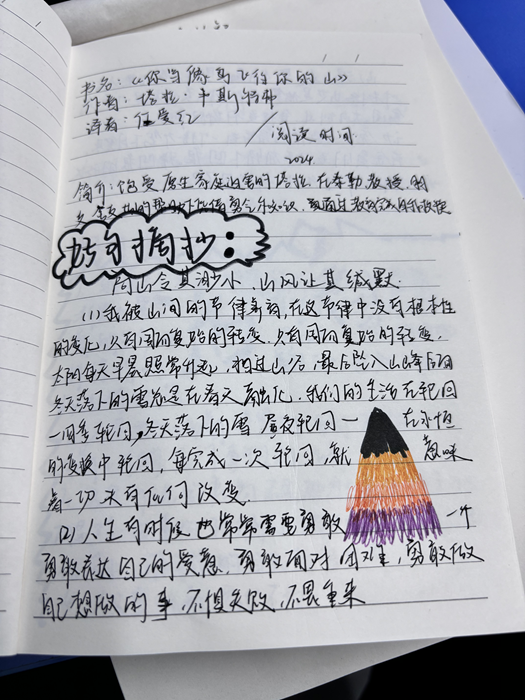 书名:《你当像鸟飞往你的山》
作者:塔拉·韦斯特弗
译者:任爱红
/阅读时间
2024
简介:饱受原生家庭迫害的塔拉,在泰勒、教授、剑
好句摘抄:
周山令其渺小,山风让其缄默
(1)我被山间的节律养育,在这节律中没有根本性
的变化,只有周而复始的转变.只有周而复始的转变.
太阳每天早晨照常升起,扫过山谷,最后坠入山峰后面
冬天落下的雪总是在春天融化.我们的生活在轮回
一四季轮回,冬天落下的雪 昼夜轮回一 在永恒
的变换中轮回,每完成一次轮回,就 意味
着一切未有任何改变.
(2)人生有时候也常常需要勇敢 一个
勇敢表达自己的爱意,勇敢面对困难,勇敢做
自己想做的事,不惧失败,不畏重来